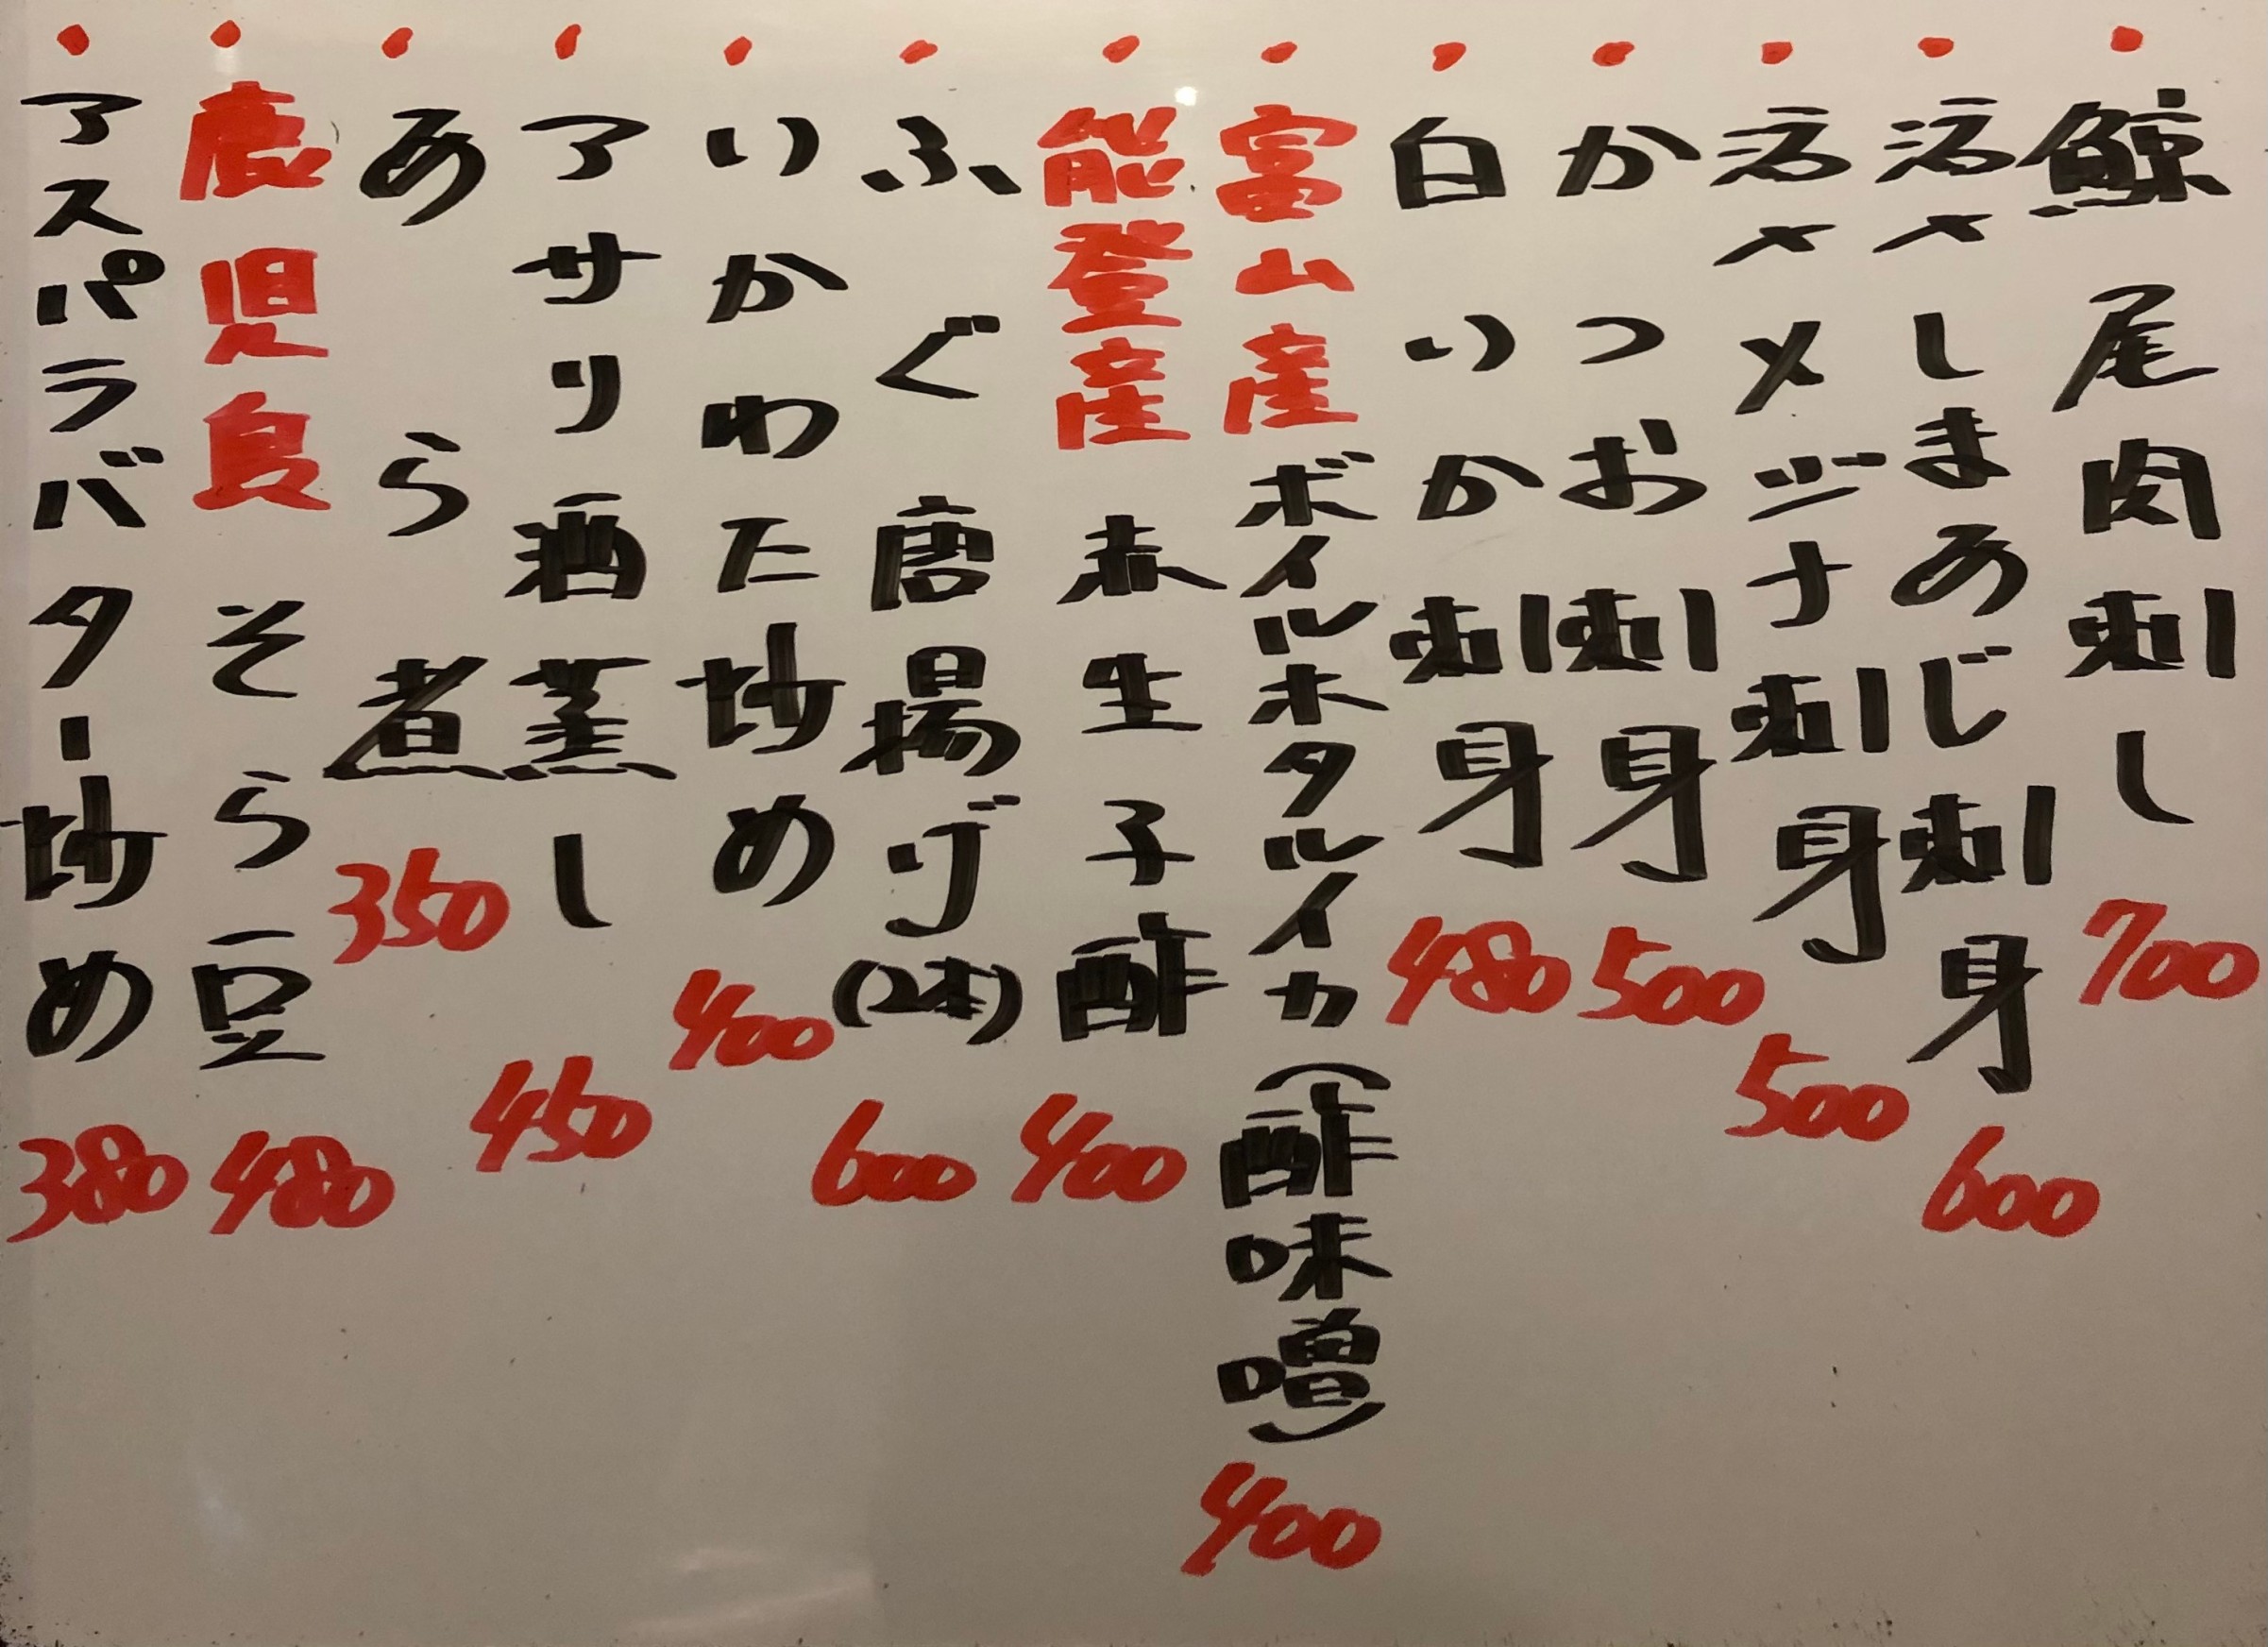 ・鯨尾肉刺し 700
・活〆しまあじ刺身 600
・活〆メジナ刺身 500
・かつお刺身 500
・白いか刺身 480
・富山産ボイルホタルイカ(酢味噌) 400
・能登産赤生子酢 400
・ふぐ唐揚げ(2本) 600
・いかわた炒め 400
・アサリ酒蒸し 450
・あら煮 350
・鹿児島そら豆 480
・アスパラバター炒め 380